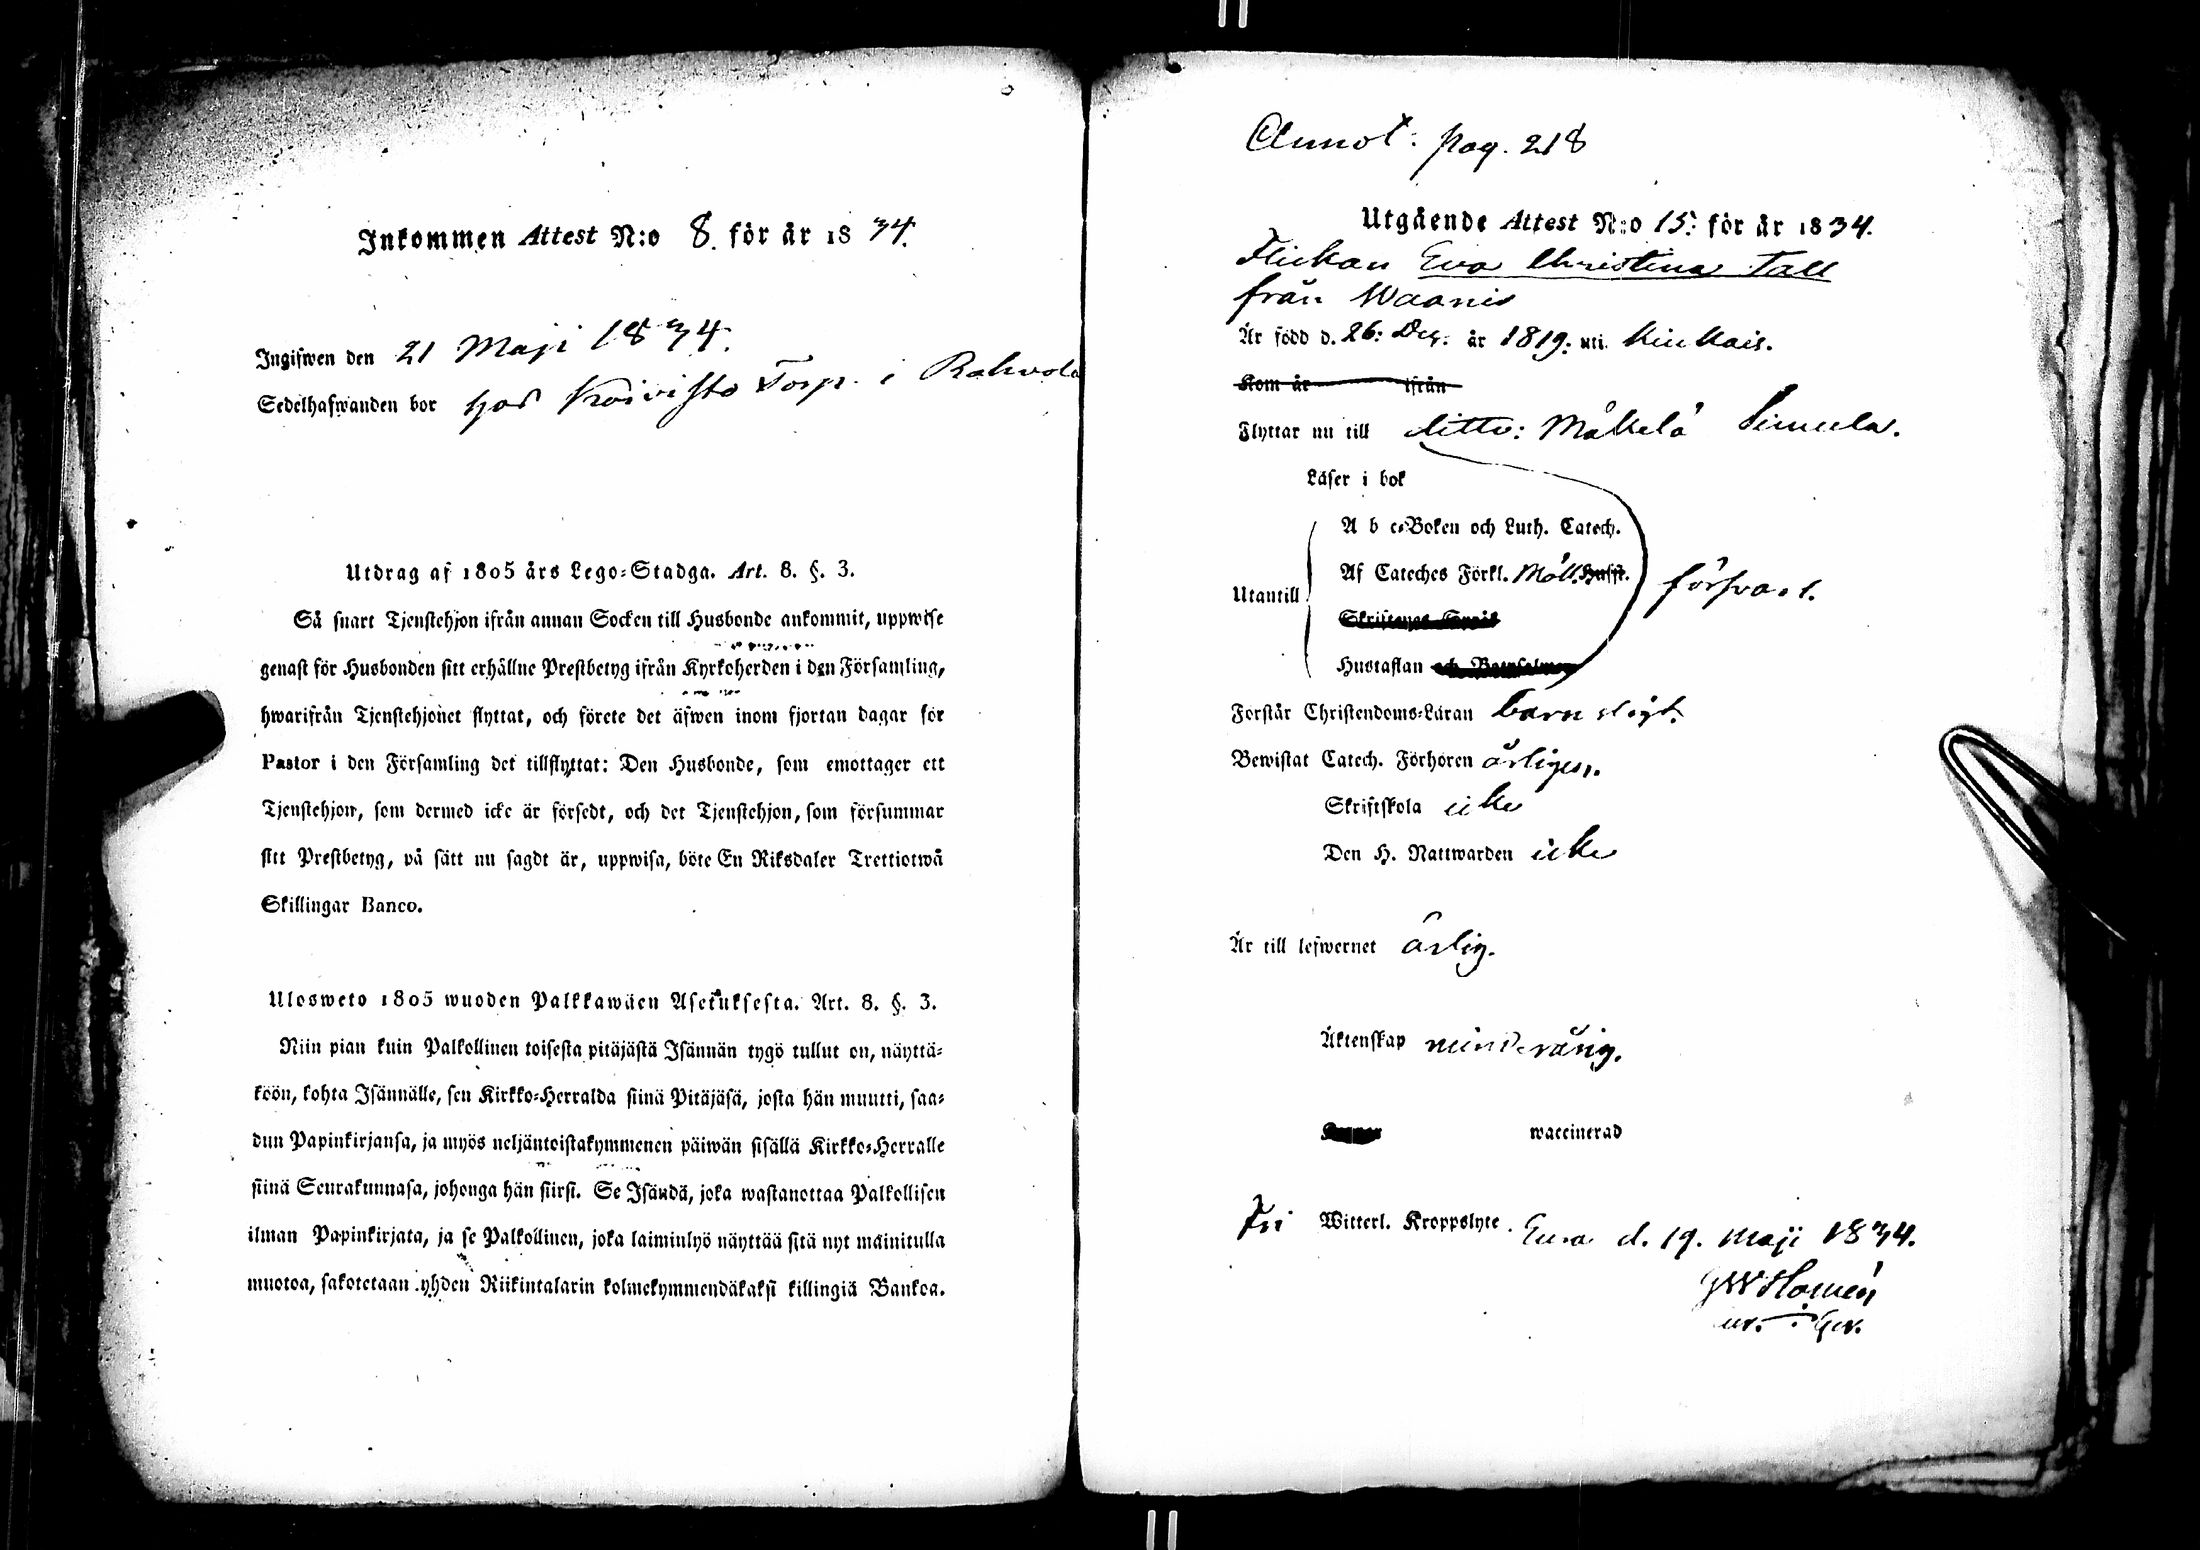 Inkommen Attest N:o 8. för år 1834.
Ingifwen den 21 Maji 1834.
Sedelhafwanden bor hos Koivisto Torp. i Rahvola
Utdrag af 1805 års Lego-Stadga. Art. 8. §. 3.
Så snart Tjenstehjon ifrån annan Socken till Husbonde ankommit, uppwise
genast för Husbonden sitt erhållne Prestbetyg ifrån Kyrkoherden i den Församling,
hwarifrån Tjenstehjonet flyttat, och förete det äfwen inom fjortan dagar för
Pastor i den Församling det tillflyttat: Den Husbonde, som emottager ett
Tjenstehjon, som dermed icke är försedt, och det Tjenstehjon, som försummar
sitt Prestbetyg, på sätt nu sagdt är, uppwisa, böte En Riksdaler Trettiotwå
Skillingar Banco.
Ulosweto 1805 wuoden Palkkawäen Asetuksesta. Art. 8. §. 3.
Niin pian kuin Palkollinen toisesta pitäjästä Isännän tygö tullut on, näyttä-
köön, kohta Isännälle, sen Kirkko-Herralda siinä Pitäjäsä, josta hän muutti, saa-
dun Papinkirjansa, ja myös neljäntoistakymmenen päiwän sisällä Kirkko-Herralle
siinä Seurakunnasa, johonga hän siirsi. Se Isändä, joka wastanottaa Palkollisen
ilman Papinkirjata, ja se Palkollinen, joka laiminlyö näyttää sitä nyt mainitulla
muotoa, sakotetaan yhden Riikintalarin kolmekymmendäkaksi killingiä Bankoa.
Annot: pag. 218
Utgående Attest N:o 15. för år 1834.
Flickan Eva Christina Tall
från Waanis
Är född d. 26: Dec. år 1819: uti Kiukais.
Kom år ifrån
Flyttar nu till ditto: Mäkelä Simula.
Läser i bok
A b c-Boken och Luth. Catech.
Af Cateches Förkl. Möll. Husst.
Utantill försvarl.
Hustaflan
Forstår Christendoms-Läran barnsligt.
Bewistat Catech. Förhören årligen.
Skriftskola icke
Den H. Nattwarden icke
Är till lefwernet ärlig.
Äktenskap minderårig.
waccinerad
Fri Witterl. Kroppslyte. Eura d. 19. Maji 1834.
GW Homén